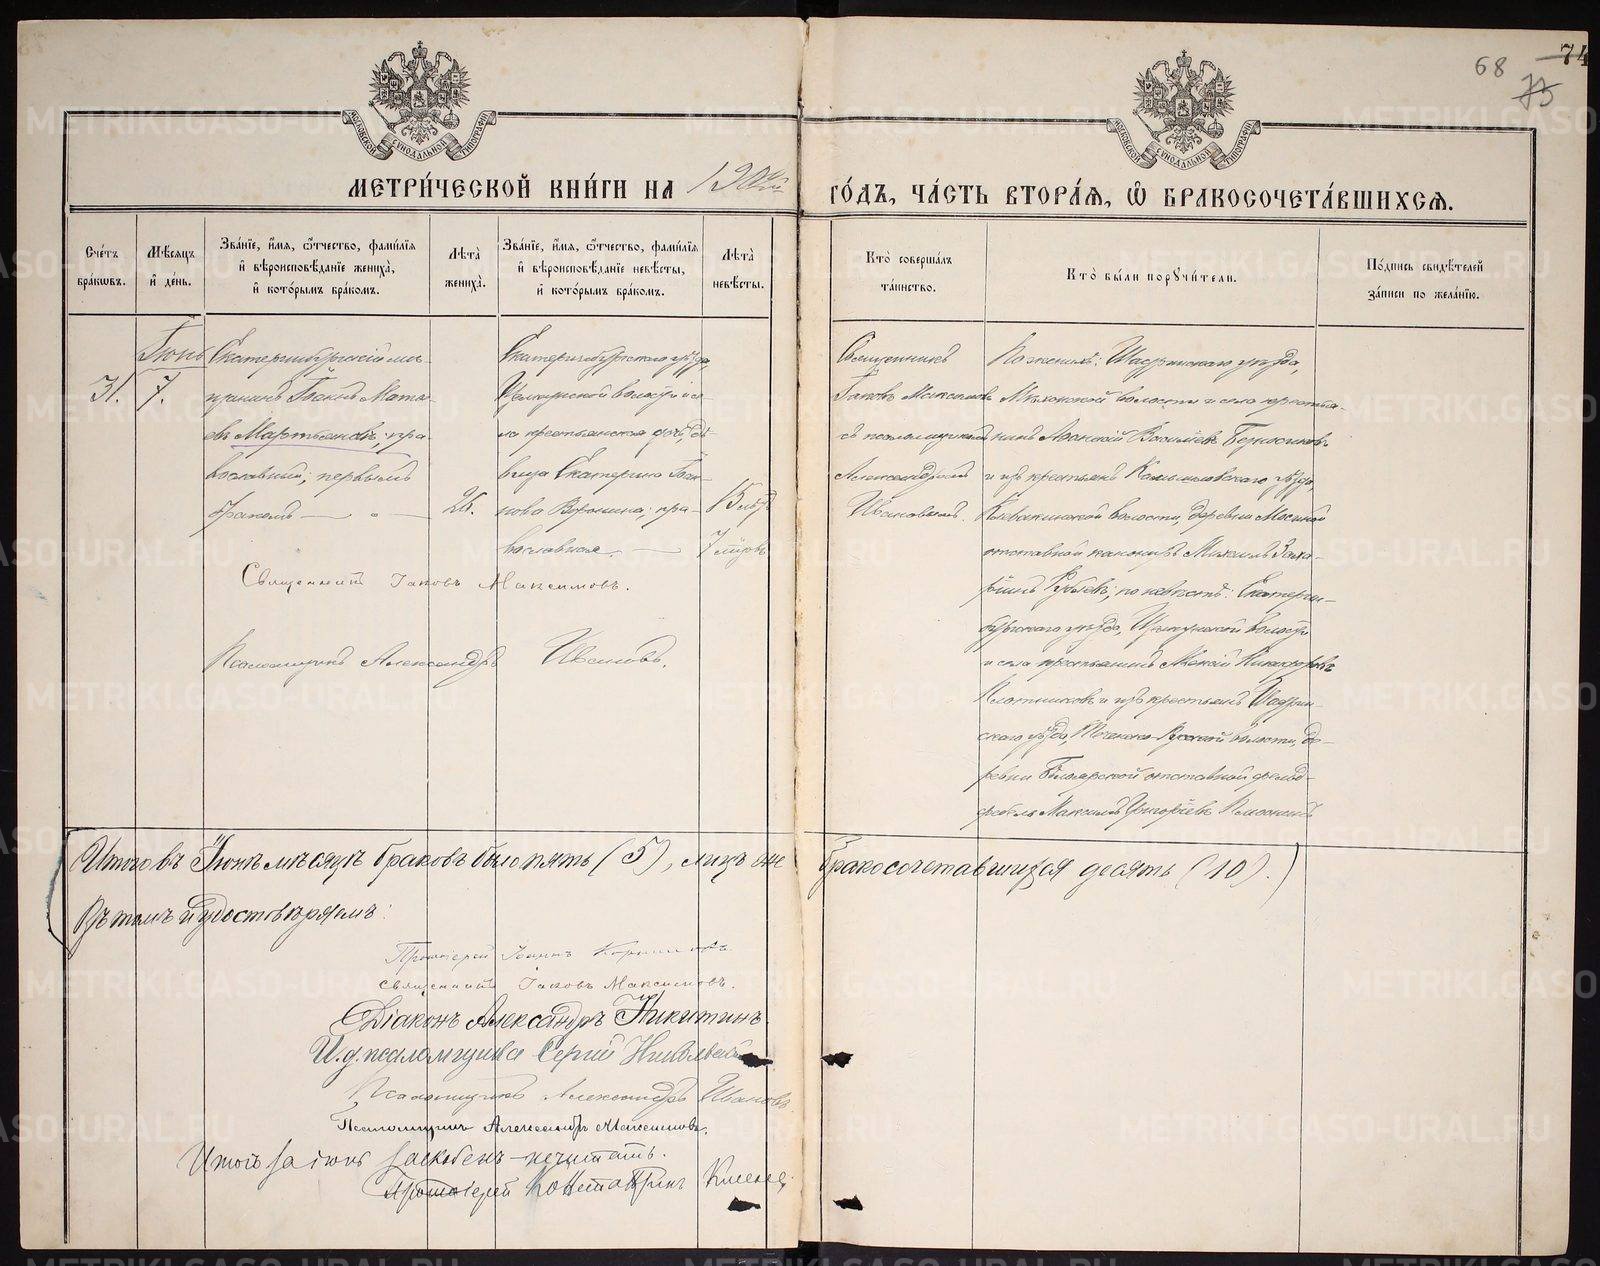 68
74
75
МОСКОВСКОЙ СѴНОДАЛЬНОЙ ТИПОГРАФІИ
МОСКОВСКОЙ СѴНОДАЛЬНОЙ ТИПОГРАФІИ
МЕТРИ́ЧЕСКОЙ КНИ́ГИ НА
ГО́ДЪ, ЧА́СТЬ ВТОРА́Ѧ, Ѡ҆ БРАКОСОЧЕТА́ВШИХСѦ.
Сче́тъ бра́кѡвъ.
Мѣ́сѧцъ и҆ де́нь.
Зва́нїе, и҆́мѧ, ѻ҆́тчество, фами́лїѧ и҆ вѣроисповѣ́данїе жениха̀, и҆ кото́рымъ бра́комъ.
Лѣта̀ жениха̀.
Зва́нїе, и҆́мѧ, ѻ҆́тчество, фами́лїѧ и҆ вѣроисповѣ́данїе невѣ́сты, и҆ кото́рымъ бра́комъ.
Лѣта̀ невѣ́сты.
Кто̀ соверша́лъ та́инство.
Кто̀ бы́ли порꙋчи́тели.
По́дпись свидѣ́телей за́писи по жела́нїю.
31.
Іюнь
7.
Екатеринбургскій мѣ-
щанинъ Іоаннъ Мат
евъ Мартьяновъ, пра-
вославный; первымъ
бракомъ
26.
Екатеринбургскаго уѣзда,
Щелкунской волости и се
ла крестьянская дочь, дѣ-
вица Екатерина Іоан-
нова Воронина; пра-
вославная.
15 лѣтъ
7 мѣсяцъ
Священникъ
Іаковъ Максимовъ
съ псаломщикомъ
Александромъ
Ивановымъ.
По женихѣ: Шадринскаго уѣзда,
Мѣхонской волости и села крестья-
нинъ Васильевъ
и изъ крестьянъ Камышловскаго уѣзда,
волости, деревни
отставной Михаилъ Заха-
по невѣстѣ: Екатерин-
бургскаго уѣзда, Щелкунской волости
и села крестьянинъ Никифоровъ
Плотниковъ и изъ крестьянъ Шадрин-
скаго уѣзда, волости, де-
ревни отставной фельд-
фебель Максимъ Григорьевъ
Священникъ Іаковъ Максимовъ.
Псаломщикъ Александръ Ивановъ.
Итого въ Іюнѣ мѣсяцѣ браковъ было пять (5), лицъ же бракосочетавшихся десять (10).
Въ томъ и удостовѣряемъ:
Протоіерей Іоаннъ
Священникъ Іаковъ Максимовъ.
Діаконъ Александръ Никитинъ.
И. д. псаломщика Сергій Никольскій
Псаломщикъ Александръ Ивановъ
Псаломщикъ Александръ Максимовъ.
Итогъ за іюнь заскобленъ – не читать.
Протоіерей Константинъ
METRIKI.GASO-URAL.RU